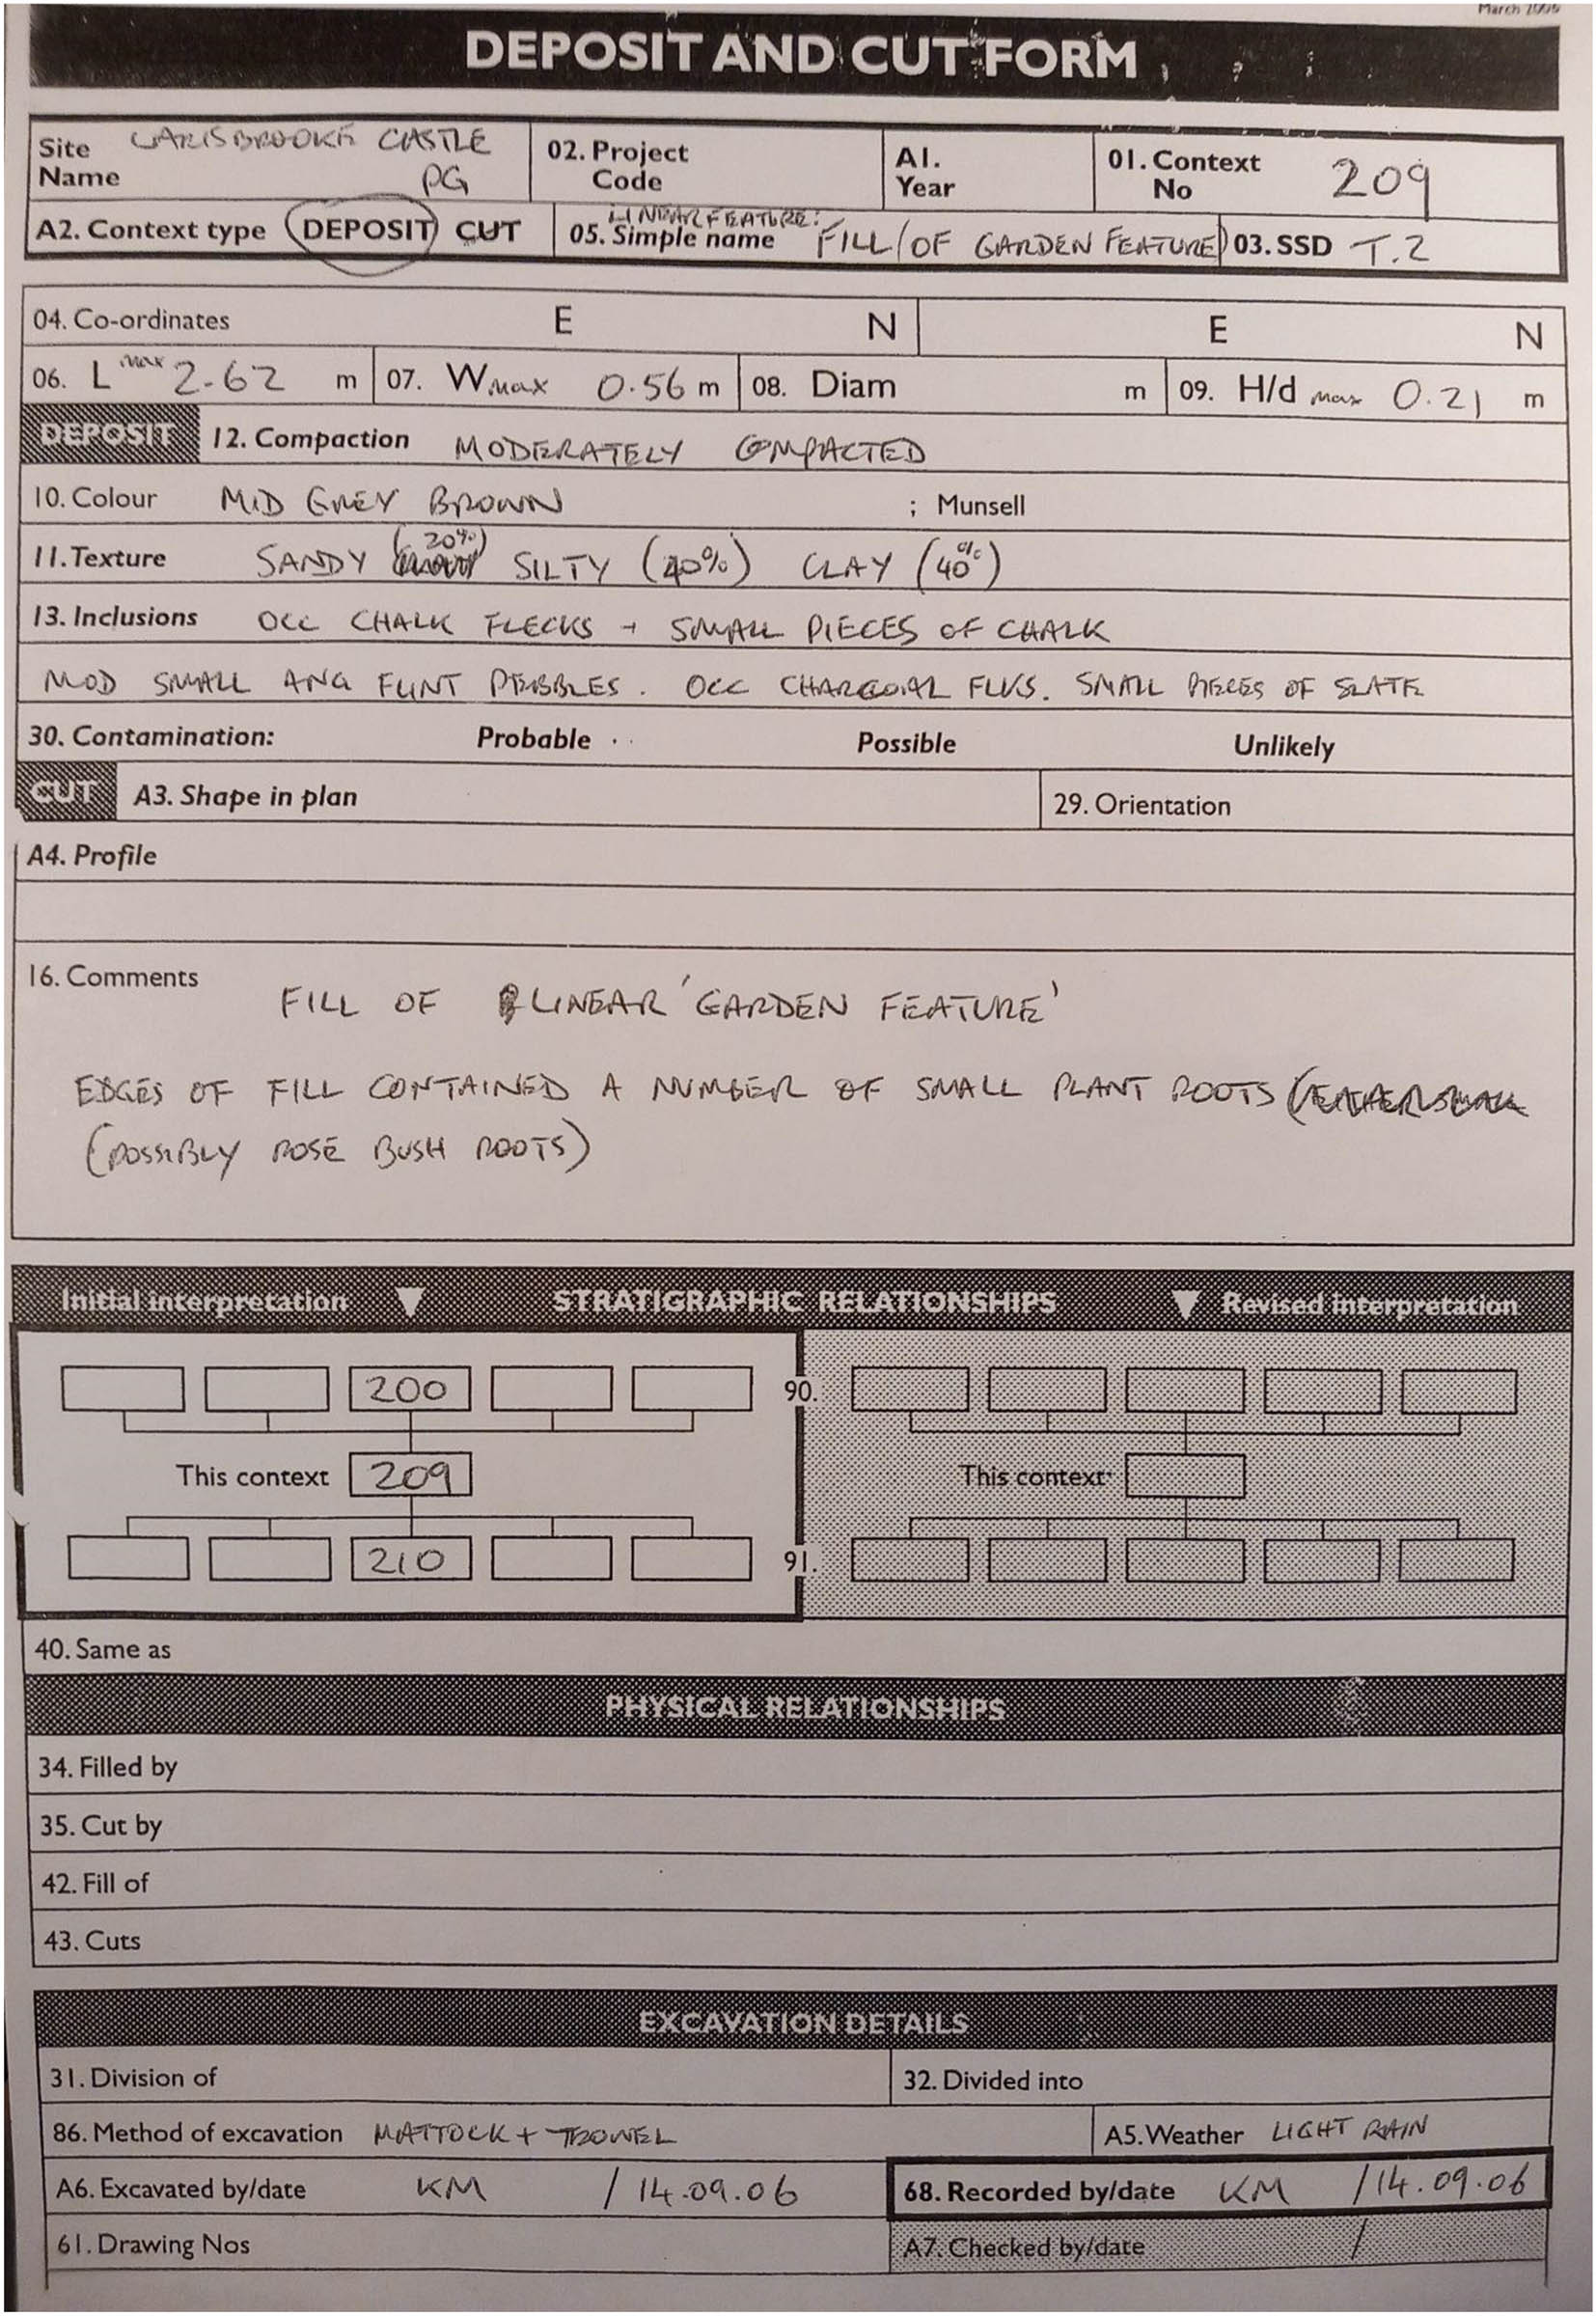 March 2006
DEPOSIT AND CUT FORM
Site Name CARISBROOKE CASTLE PG 02. Project Code A1. Year 01. Context No 209
A2. Context type DEPOSIT CUT 05. Simple name LINEAR FEATURE: FILL OF GARDEN FEATURE 03. SSD T.2
04. Co-ordinates E N E N
06. L max 2.62 m 07. W max 0.56 m 08. Diam m 09. H/d max 0.21 m
DEPOSIT 12. Compaction MODERATELY COMPACTED
10. Colour MID GREY BROWN ; Munsell
11. Texture SANDY (20%) SILTY (40%) CLAY (40%)
13. Inclusions OCC CHALK FLECKS + SMALL PIECES OF CHALK
MOD SMALL ANG FLINT PEBBLES. OCC CHARCOAL FLKS. SMALL PIECES OF SLATE
30. Contamination: Probable Possible Unlikely
CUT A3. Shape in plan 29. Orientation
A4. Profile
16. Comments
FILL OF LINEAR 'GARDEN FEATURE'
EDGES OF FILL CONTAINED A NUMBER OF SMALL PLANT ROOTS
(POSSIBLY ROSE BUSH ROOTS)
Initial interpretation STRATIGRAPHIC RELATIONSHIPS Revised interpretation
200 90.
This context 209 This context
210 91.
40. Same as
PHYSICAL RELATIONSHIPS
34. Filled by
35. Cut by
42. Fill of
43. Cuts
EXCAVATION DETAILS
31. Division of 32. Divided into
86. Method of excavation MATTOCK + TROWEL A5. Weather LIGHT RAIN
A6. Excavated by/date KM / 14.09.06 68. Recorded by/date KM / 14.09.06
61. Drawing Nos A7. Checked by/date /